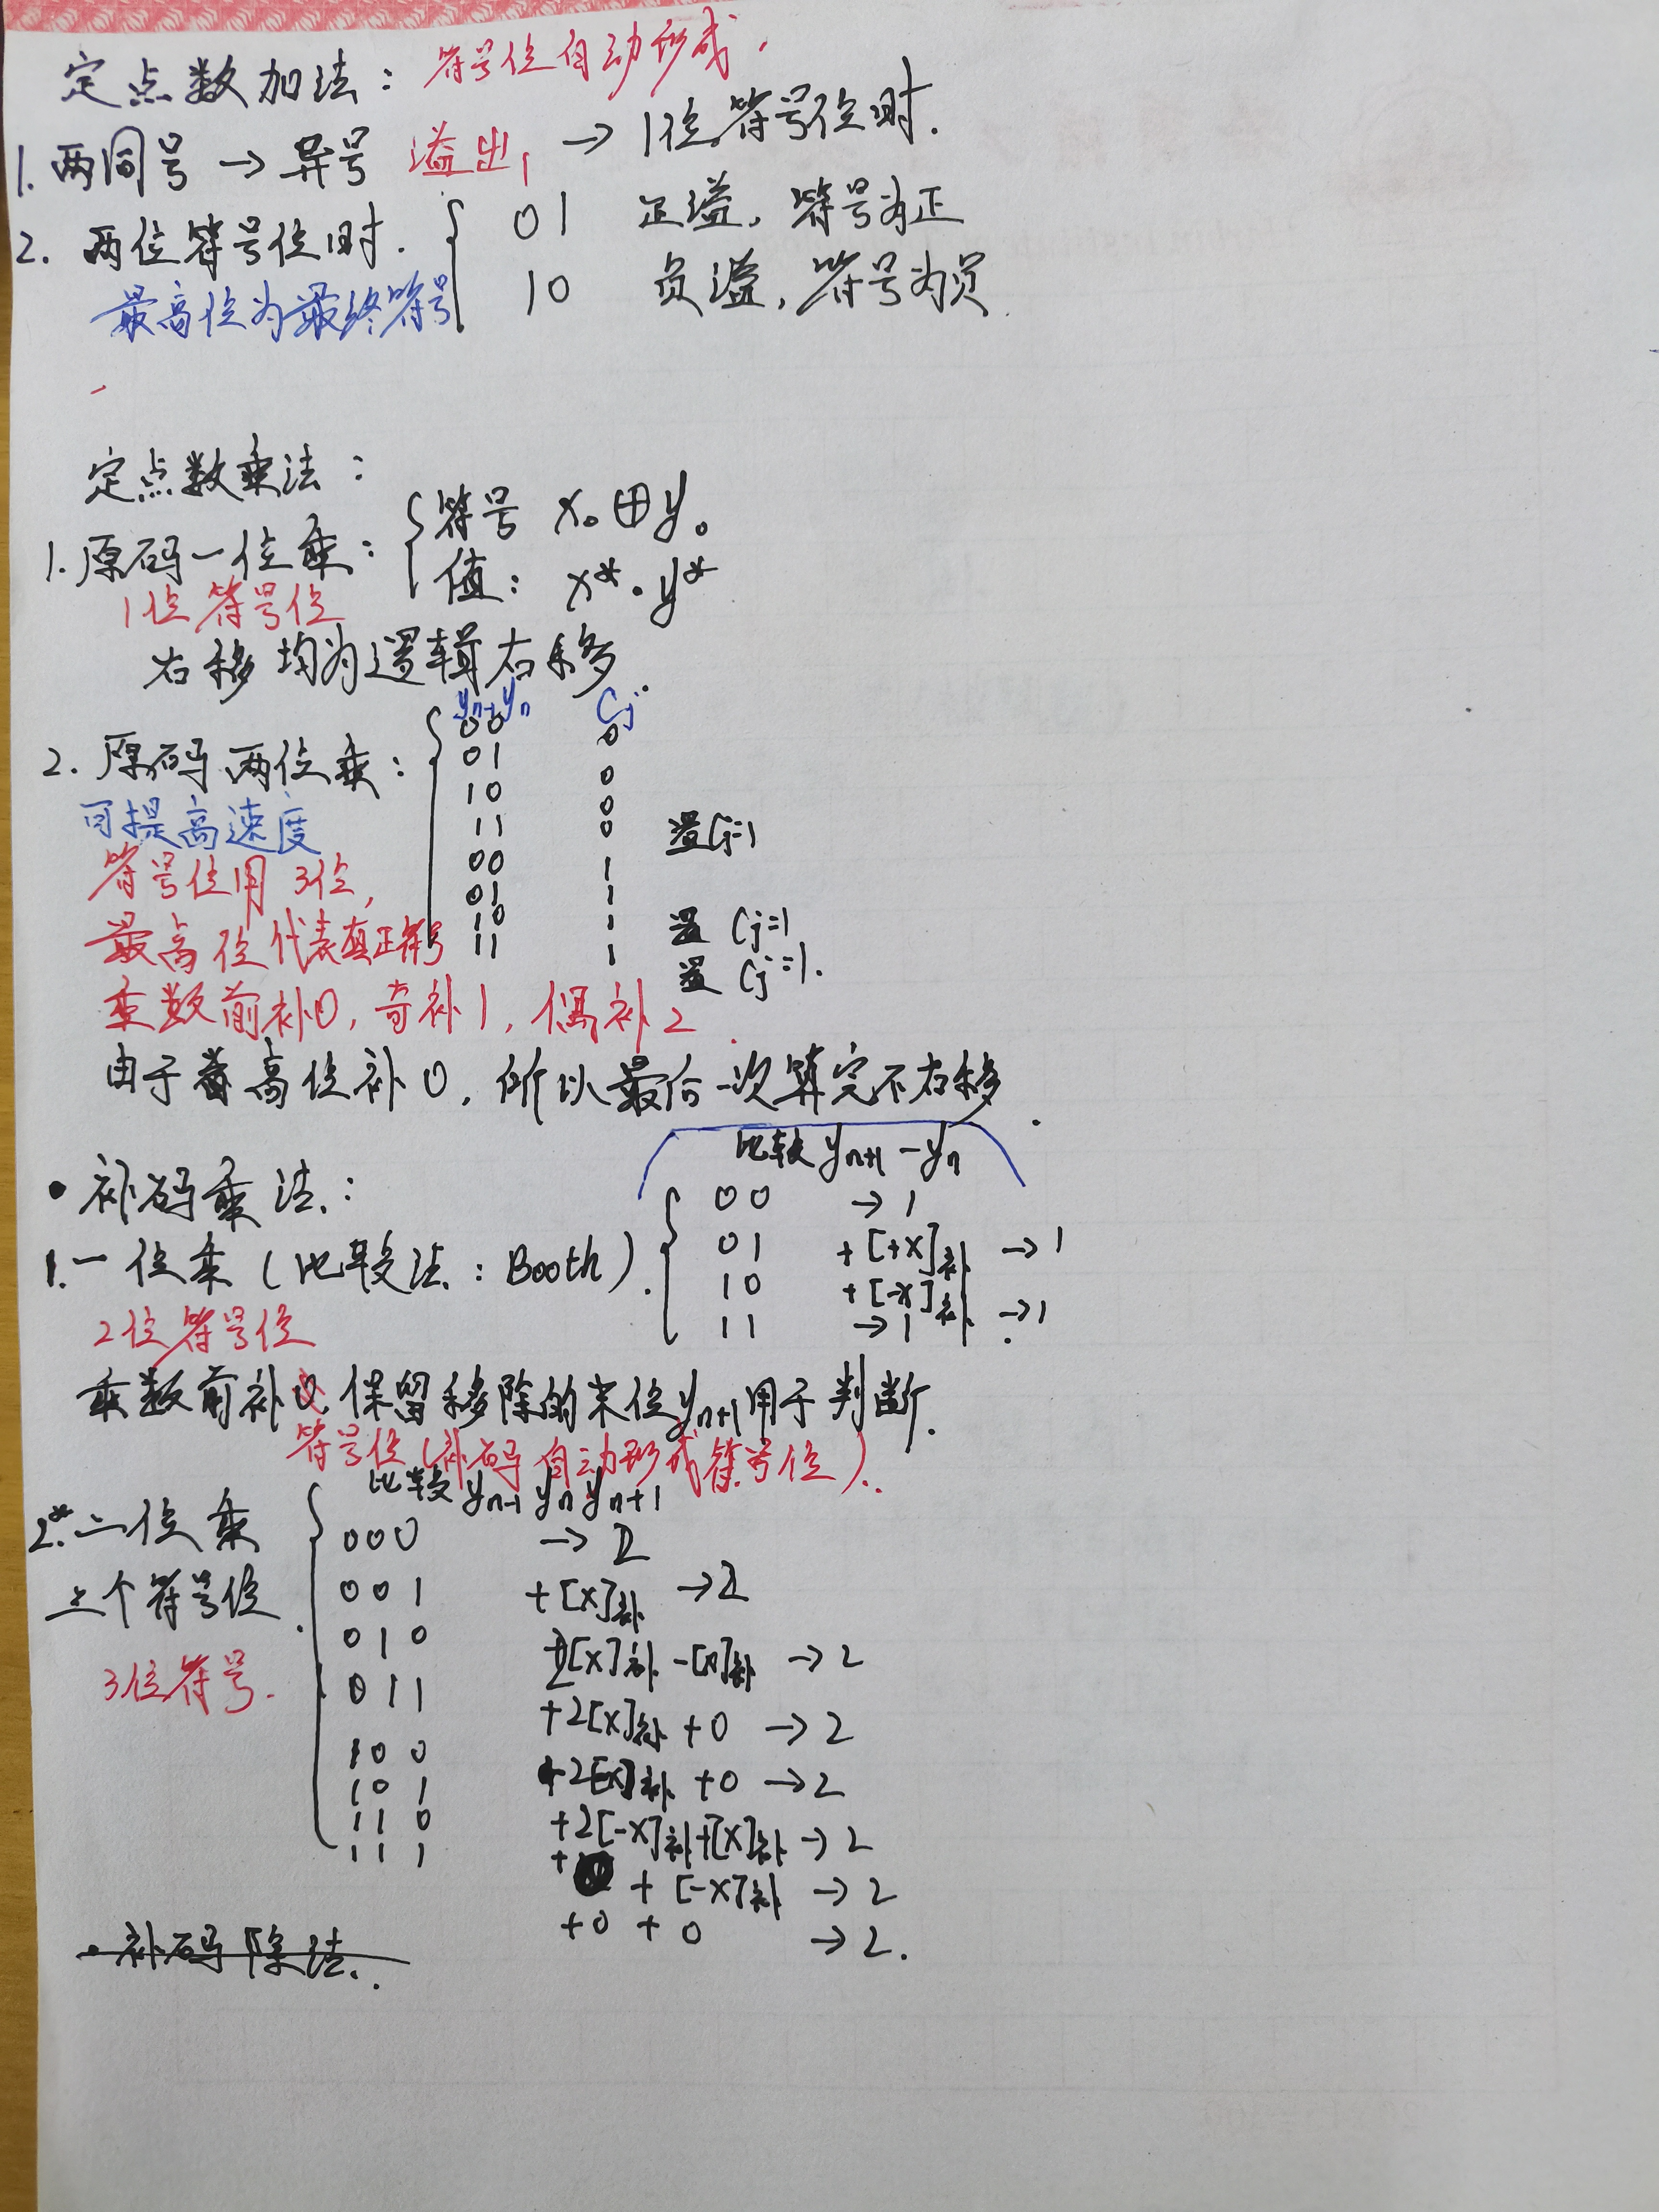 定点数加法：符号位自动形成.
1. 两同号 → 异号 溢出, → 1位符号位时.
2. 两位符号位时. { 01 正溢, 符号为正
最高位为最终符号 10 负溢, 符号为负.
定点数乘法：
1. 原码一位乘：{ 符号 x₀⊕y₀
值：x*·y*
1位符号位
右移均为逻辑右移.
yₙ₋₁yₙ Cj
2. 原码两位乘：{ 00 0
01 0
10 0
可提高速度 11 0 置Cj=1
符号位用3位, 00 1
01 1
最高位代表真正符号 10 1 置 Cj=1
11 1 置 Cj=1.
乘数前补0, 奇补1, 偶补2.
由于最高位补0, 所以最后一次算完不右移.
比较 yₙ₊₁-yₙ
• 补码乘法：{ 00 → 1
1. 一位乘（比较法：Booth）. 01 +[+x]补 → 1
10 +[-x]补 → 1
11 → 1.
2位符号位
乘数前补 保留移除的末位yₙ₊₁用于判断.
符号位（补码自动形成符号位）.
比较 yₙ₋₁ yₙ yₙ₊₁
2.* 二位乘 { 000 → 2
三个符号位. 001 +[x]补 → 2
010 [x]补 -[x]补 → 2
3位符号. 011 +2[x]补 +0 → 2
100 +2[-x]补 +0 → 2
101 +2[-x]补+[x]补 → 2
110 + + [-x]补 → 2
111 +0 + 0 → 2.
• 补码除法.